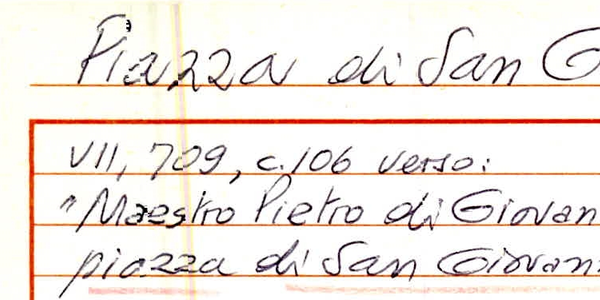 Piazza di San G
VII, 709, c. 106 verso:
"Maestro Pietro di Giovan
piazza di San Giovan